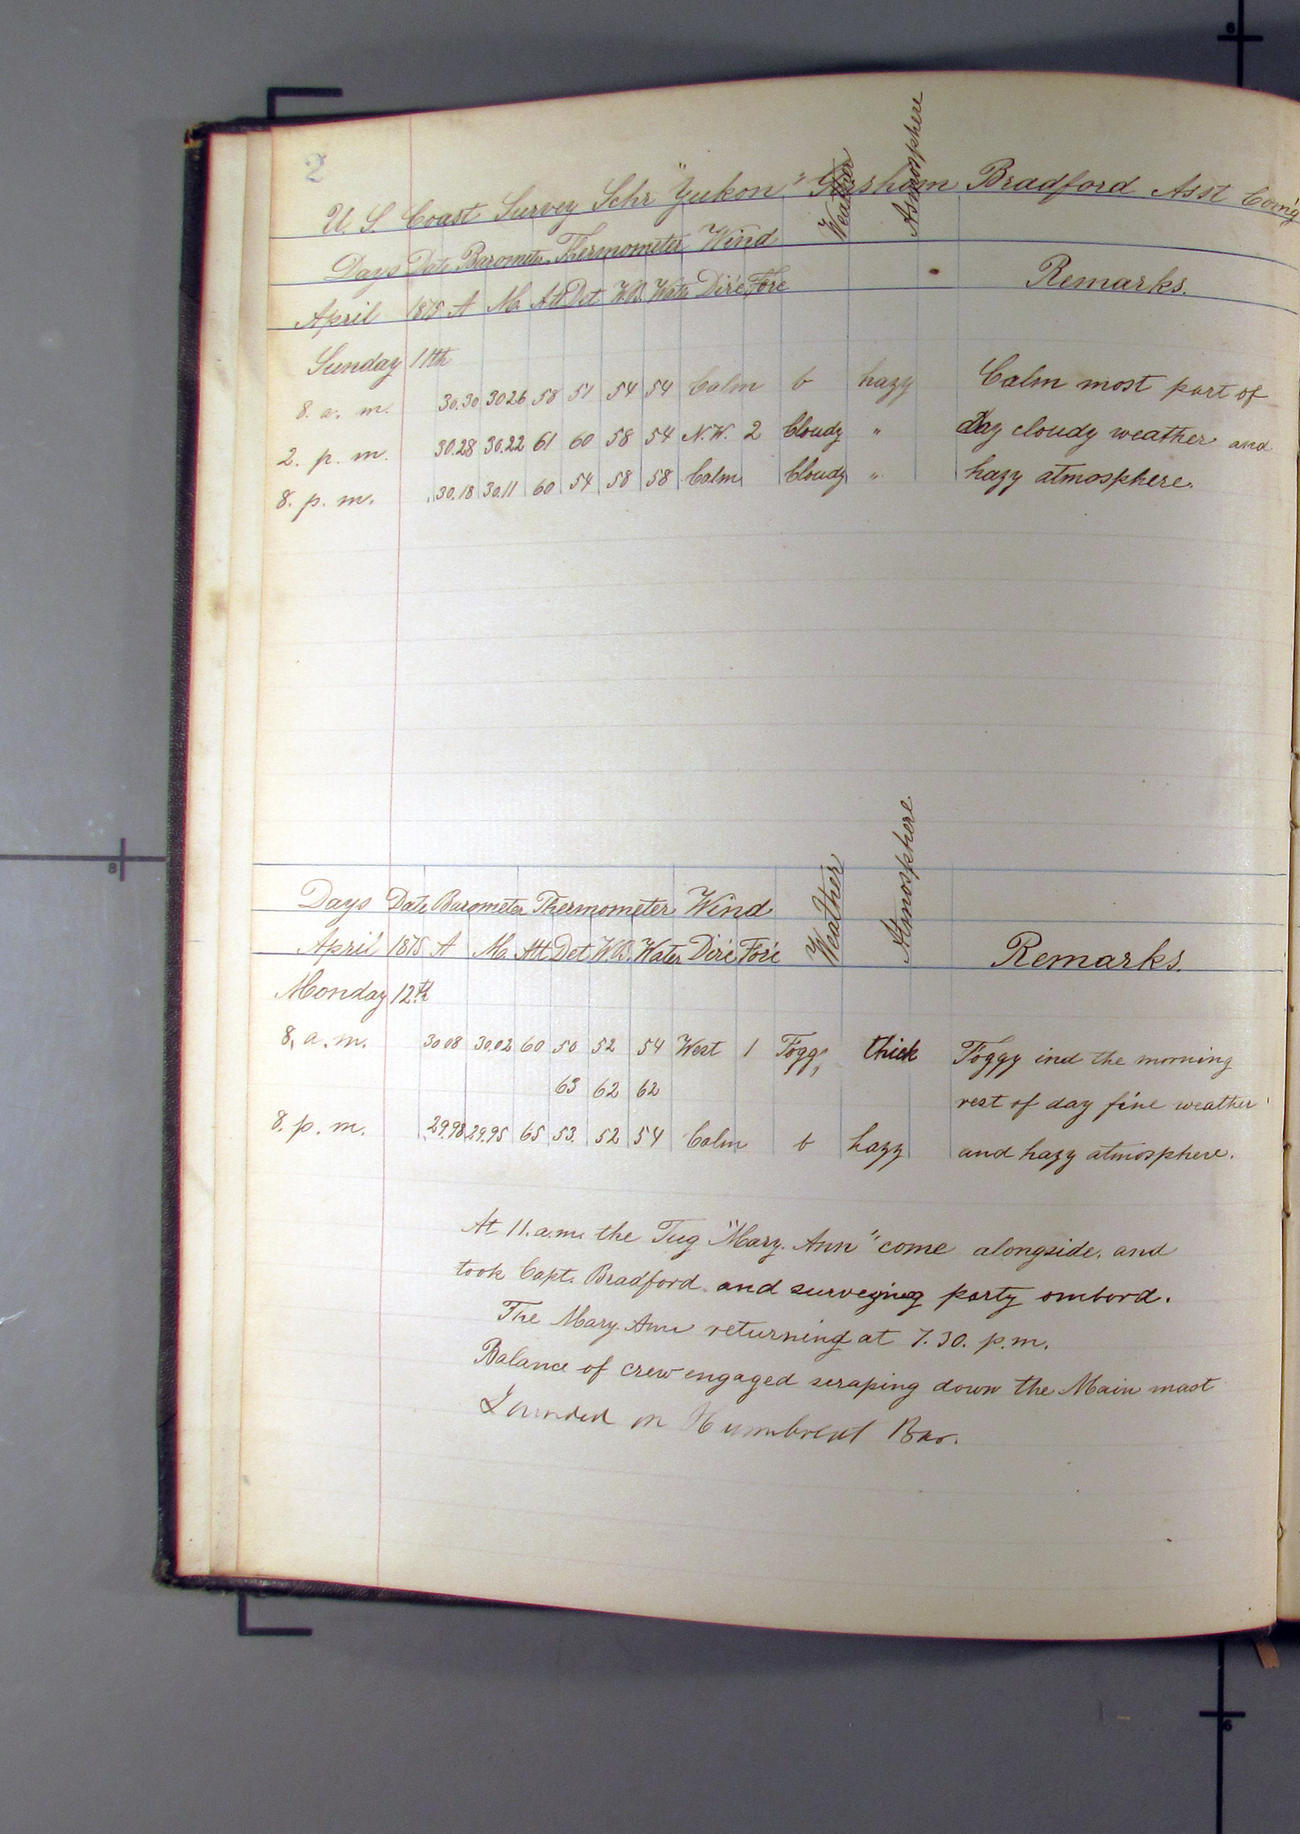 2
U S Coast Survey Schr "Yukon" Gershom Bradford Asst Com'g
Days Date Barometer Thermometer Wind Weather Atmosphere Remarks.
April 1875 A M Att Det W.B. Water Dir'c For'c
Sunday 11th
8. a. m. 30.30 30.26 58 51 54 54 Calm b hazy Calm most part of
2. p. m. 30.28 30.22 61 60 58 54 N.W. 2 Cloudy " day cloudy weather and
8. p. m. 30.18 30.11 60 54 58 58 Calm Cloudy " hazy atmosphere.
Days Date Barometer Thermometer Wind Weather Atmosphere
April 1875 A M Att Det W.B. Water Dir'c For'c Remarks.
Monday 12th
8, a. m. 30.08 30.02 60 50 52 54 West 1 Foggy thick Foggy ind the morning
63 62 62 rest of day fine weather
8. p. m. 29.98 29.95 65 53. 52 54 Calm b hazy and hazy atmosphere.
At 11. a.m. the Tug "Mary. Ann" come alongside. and
took Capt. Bradford. and surveying party ombord.
The Mary. Ann returning at 7.30. p.m.
Balance of crew engaged scraping down the Main mast
on Bar.